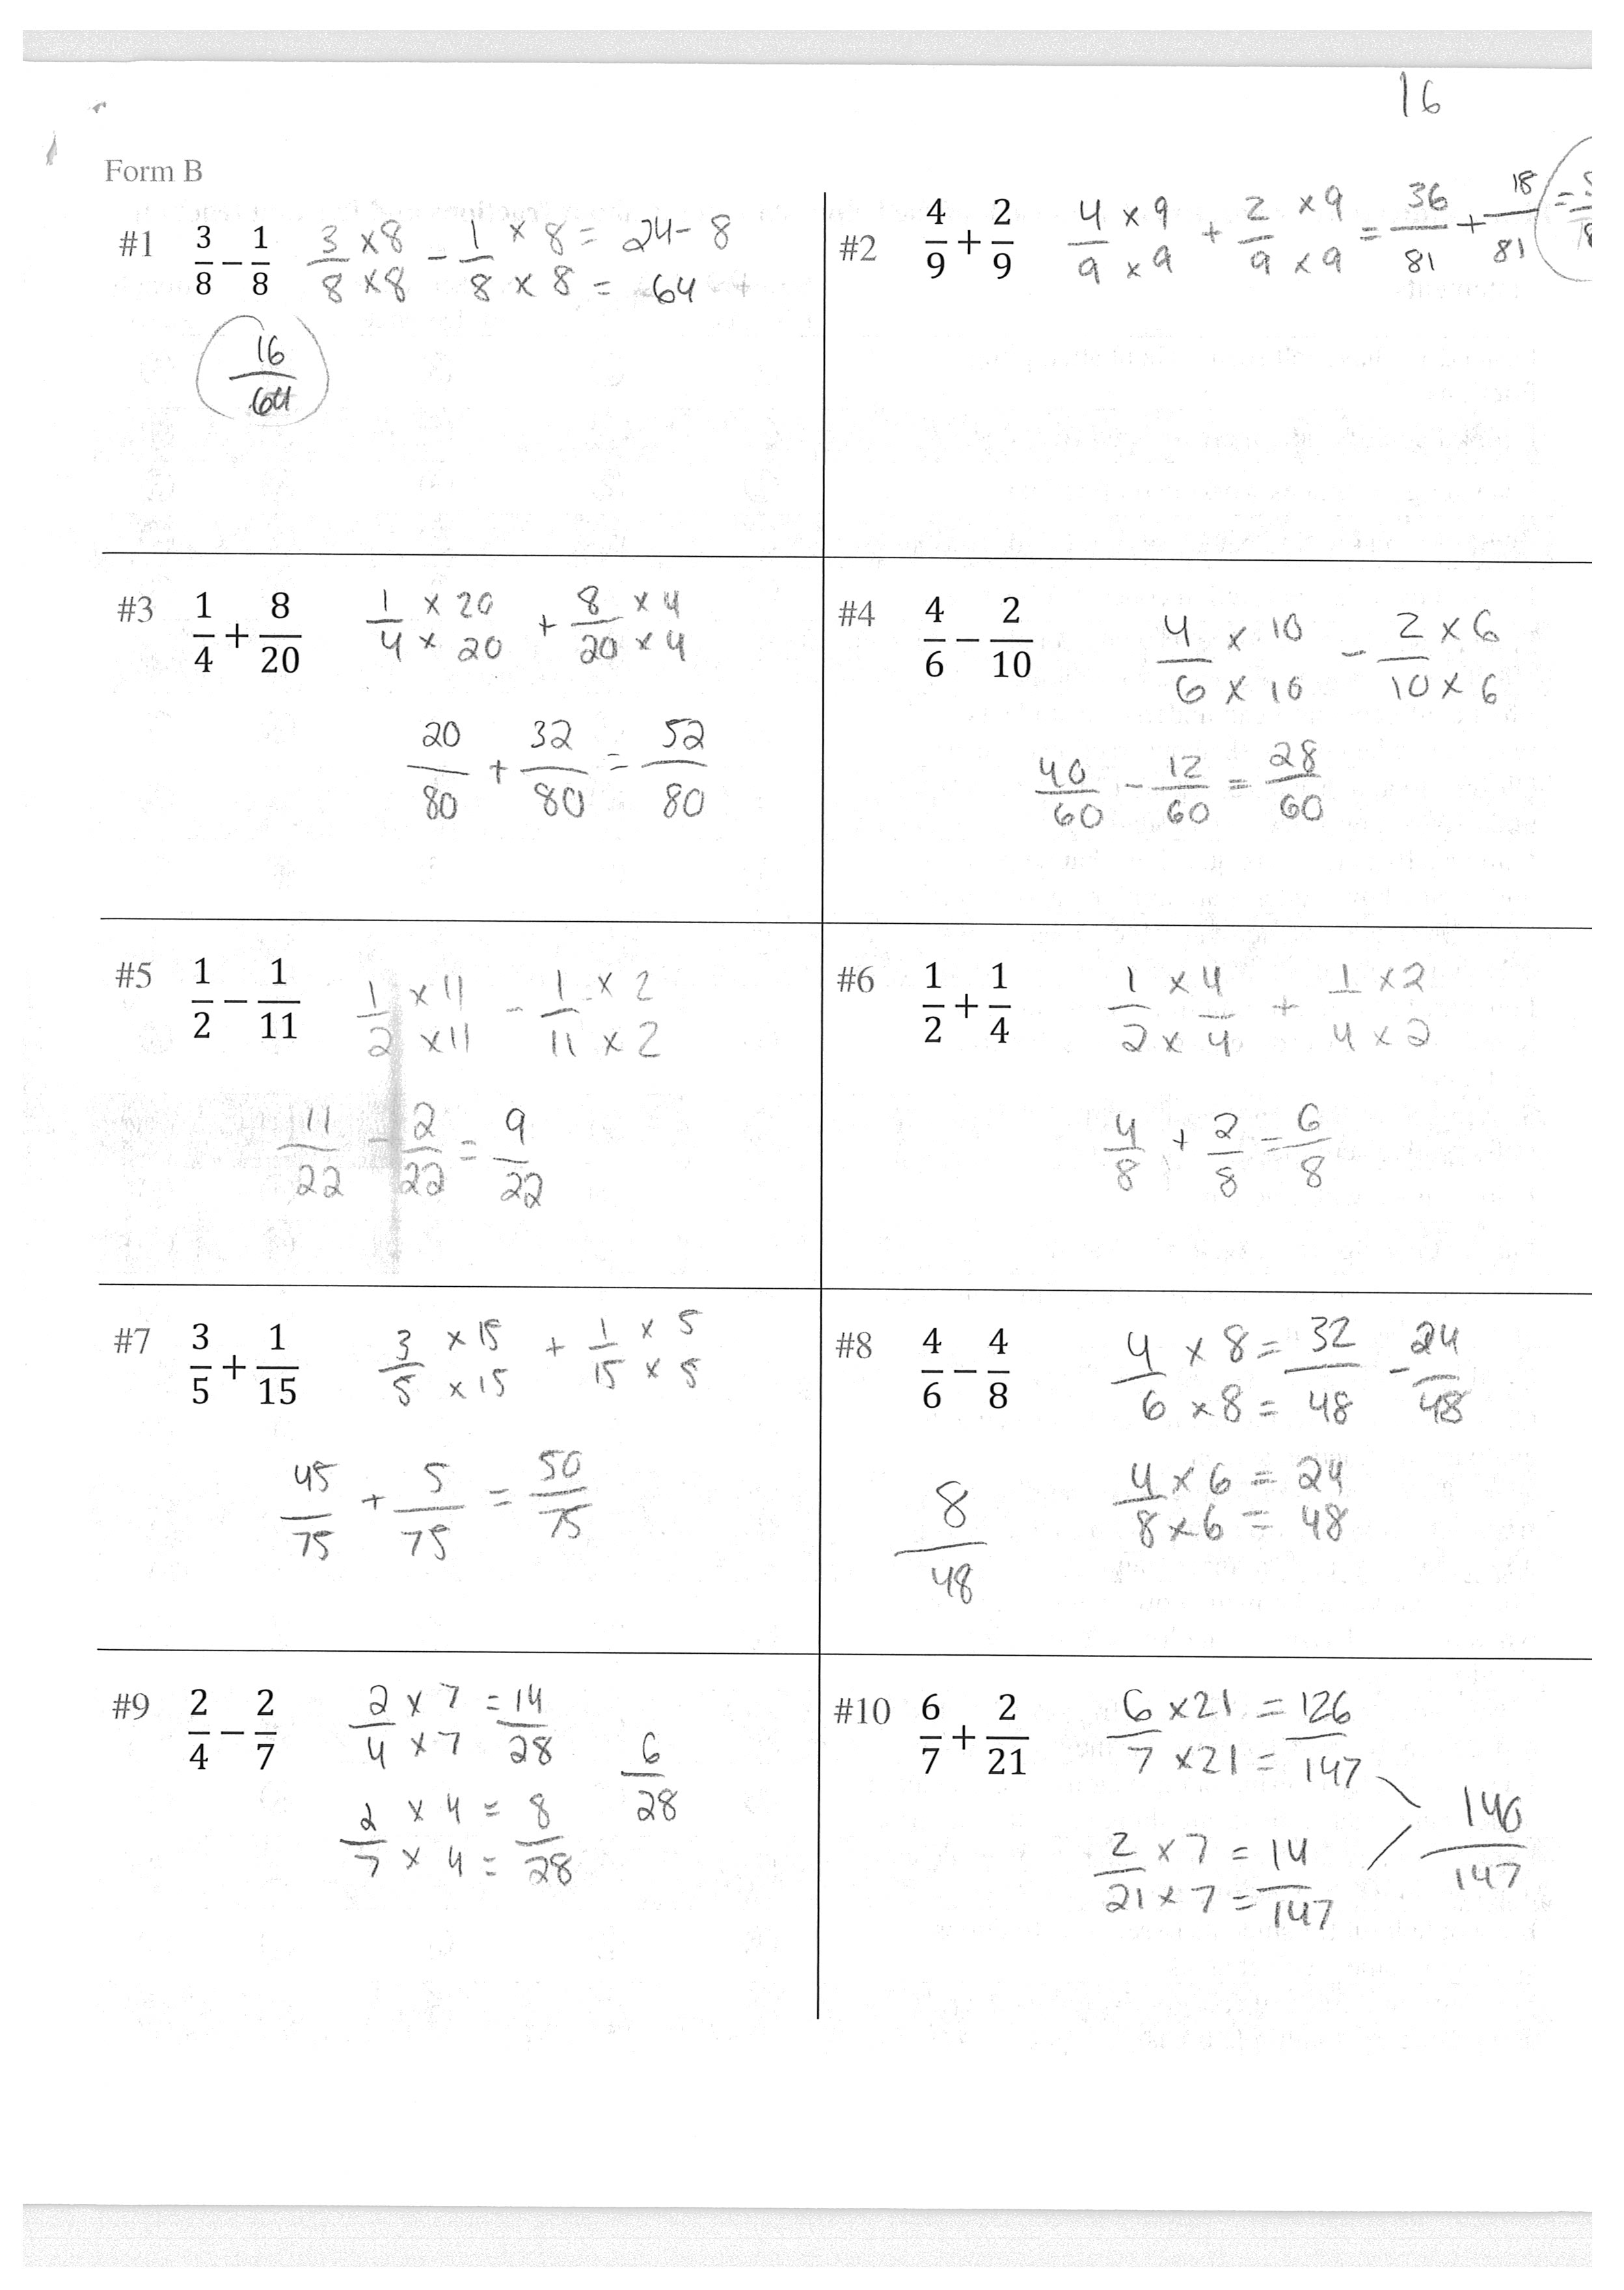 16
Form B
#1 3/8 − 1/8 3/8 × 8 − 1/8 × 8 = 24 - 8
× 8 × 8 = 64
16/64
#2 4/9 + 2/9 4 × 9/9 × 9 + 2 × 9/9 × 9 = 36/81 + 18/81 =
#3 1/4 + 8/20 1 × 20/4 × 20 + 8 × 4/20 × 4
20/80 + 32/80 = 52/80
#4 4/6 − 2/10 4 × 10/6 × 10 - 2 × 6/10 × 6
40/60 - 12/60 = 28/60
#5 1/2 − 1/11 1 × 11/2 × 11 - 1 × 2/11 × 2
11/22 - 2/22 = 9/22
#6 1/2 + 1/4 1 × 4/2 × 4 + 1 × 2/4 × 2
4/8 + 2/8 = 6/8
#7 3/5 + 1/15 3 × 15/5 × 15 + 1 × 5/15 × 5
45/75 + 5/75 = 50/75
#8 4/6 − 4/8 4 × 8 = 32 - 24
6 × 8 = 48 48
4 × 6 = 24
8 × 6 = 48
8/48
#9 2/4 − 2/7 2 × 7 = 14
4 × 7 28
2 × 4 = 8
7 × 4 = 28
6/28
#10 6/7 + 2/21 6 × 21 = 126
7 × 21 = 147
2 × 7 = 14
21 × 7 = 147
140/147